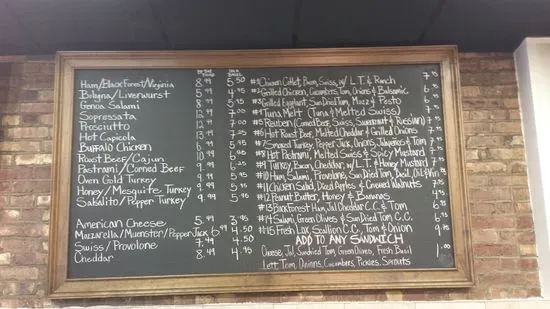 BY THE POUND ON A BAGEL
Ham/Black Forest/Virginia 8.99 5.50
Bologna/Liverwurst 5.99 4.95
Genoa Salami 8.99 5.
Sopressata 12.99 7.00
Prosciutto 7.00
Hot Capicola
Buffalo Chicken 6.
Roast Beef/Cajun 10.99 6.
Pastrami/Corned Beef .99 6.
Oven Gold Turkey 9.99
Honey/Mesquite Turkey 9.99 5.
Salsalito/Pepper Turkey 9.99 5.
American Cheese 5.99 3.95
Mozzarella/Muenster/Pepper Jack 6.99 4.50
Swiss/Provolone 7.99 4.50
Cheddar 8.49 4.95
#1 Chicken Cutlet, Bacon, Swiss, w/ L.T. & Ranch 7.95
#2 Grilled Chicken, Cucumbers, Tom, Onions & Balsamic
#3 Grilled Eggplant, Sun Dried Tom, Mozz & Pesto 6.
#4 Tuna Melt (Tuna & Melted Swiss)
#5 Reuben (Corned Beef, Swiss, Sauerkraut & Russian)
#6 Hot Roast Beef, Melted Cheddar & Grilled Onions
#7 Smoked Turkey, Pepper Jack, Onions, Jalapeños & Tom
#8 Hot Pastrami, Melted Swiss & Spicy Mustard
#9 Turkey, Bacon, Cheddar, w/ L.T. & Honey Mustard
#10 Ham, Salami, Provolone, Sun Dried Tom, Basil, Oil & Vin
#11 Chicken Salad, Diced Apples & Crushed Walnuts
#12 Peanut Butter, Honey & Bananas
#13 Black Forest Ham, Jal Cheddar C.C. & Tom
#14 Salami, Green Olives & Sun Dried Tom C.C.
#15 Fresh Lox Scallion C.C., Tom & Onion 9.
ADD TO ANY SANDWICH
Cheese, Jal, Sundried Tom, Green Olives, Fresh Basil 1.00
Lett, Tom, Onions, Cucumbers, Pickles, Sprouts .50